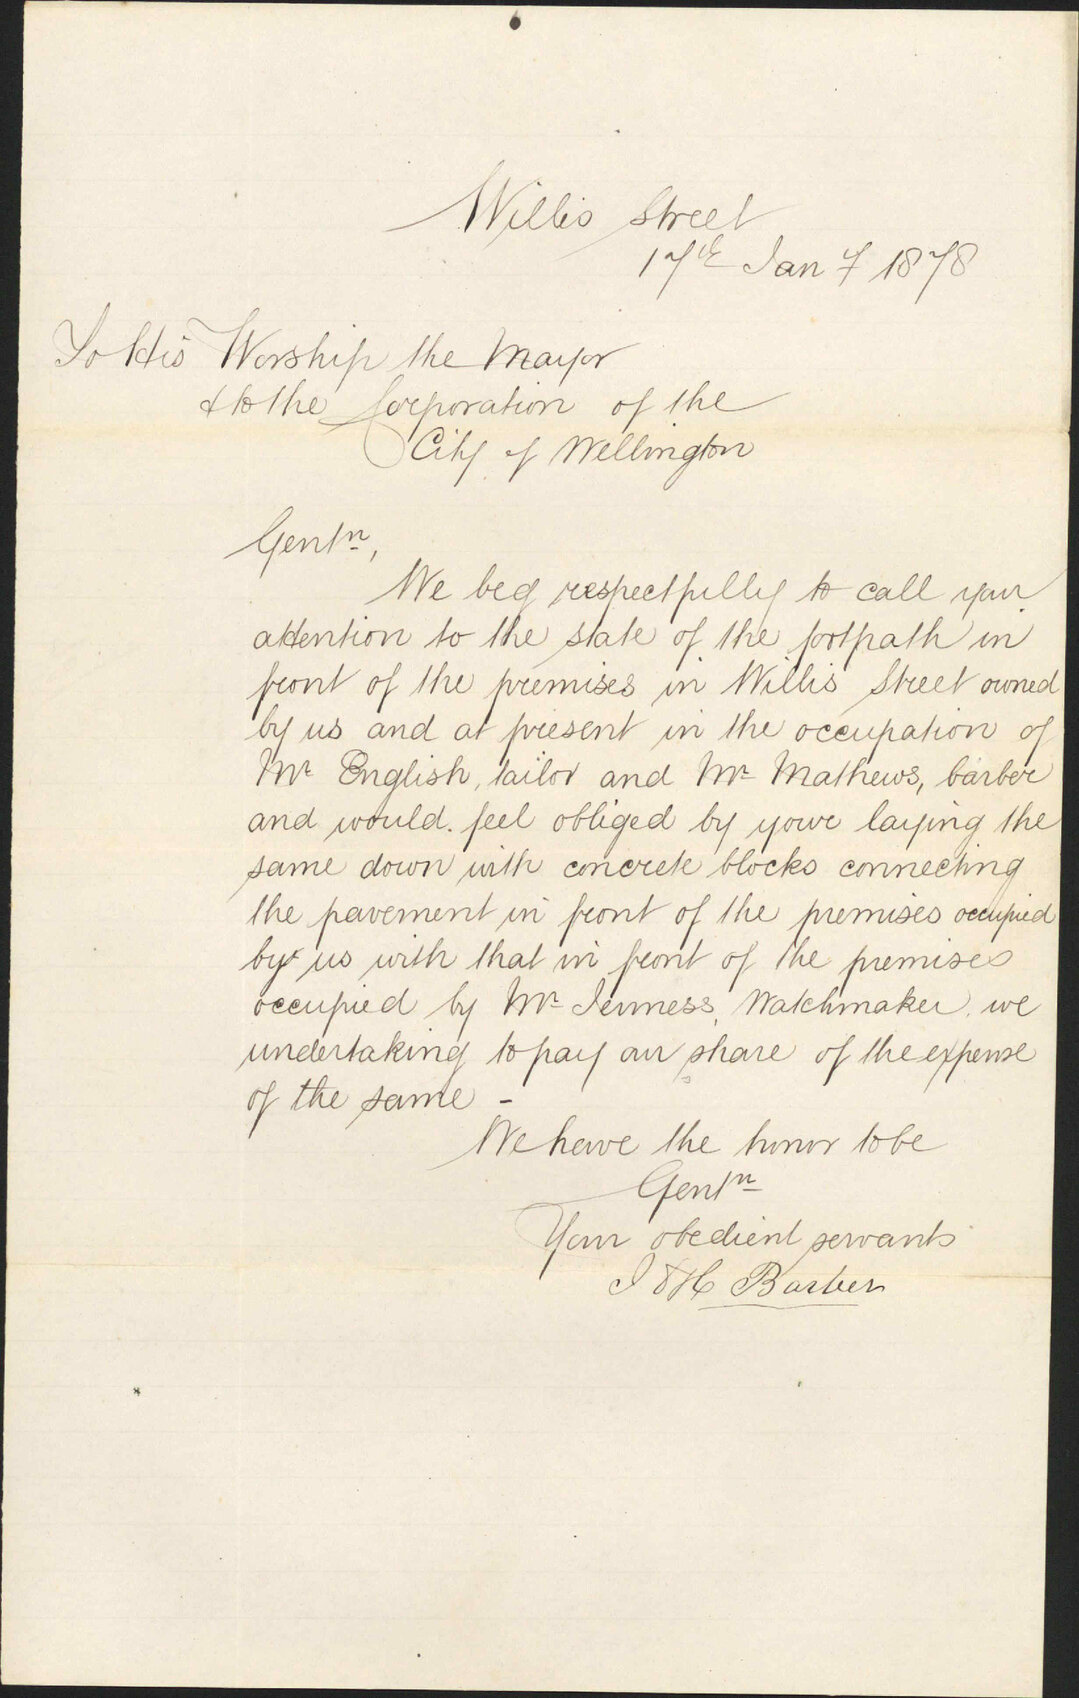 Willis Street
17th Jany 1878
To His Worship the Mayor
& to the Corporation of the
City of Wellington
Gentn,
We beg respectfully to call your
attention to the state of the footpath in
front of the premises in Willis Street owned
by us and at present in the occupation of
Mr English, tailor and Mr Mathews, barber
and would. feel obliged by your laying the
same down with concrete blocks connecting
the pavement in front of the premises occupied
by us with that in front of the premises
occupied by Mr Jenness, Watchmaker, we
undertaking to pay our share of the expense
of the same -
We have the honor to be
Gentn
Your obedient servants
J & H Barber